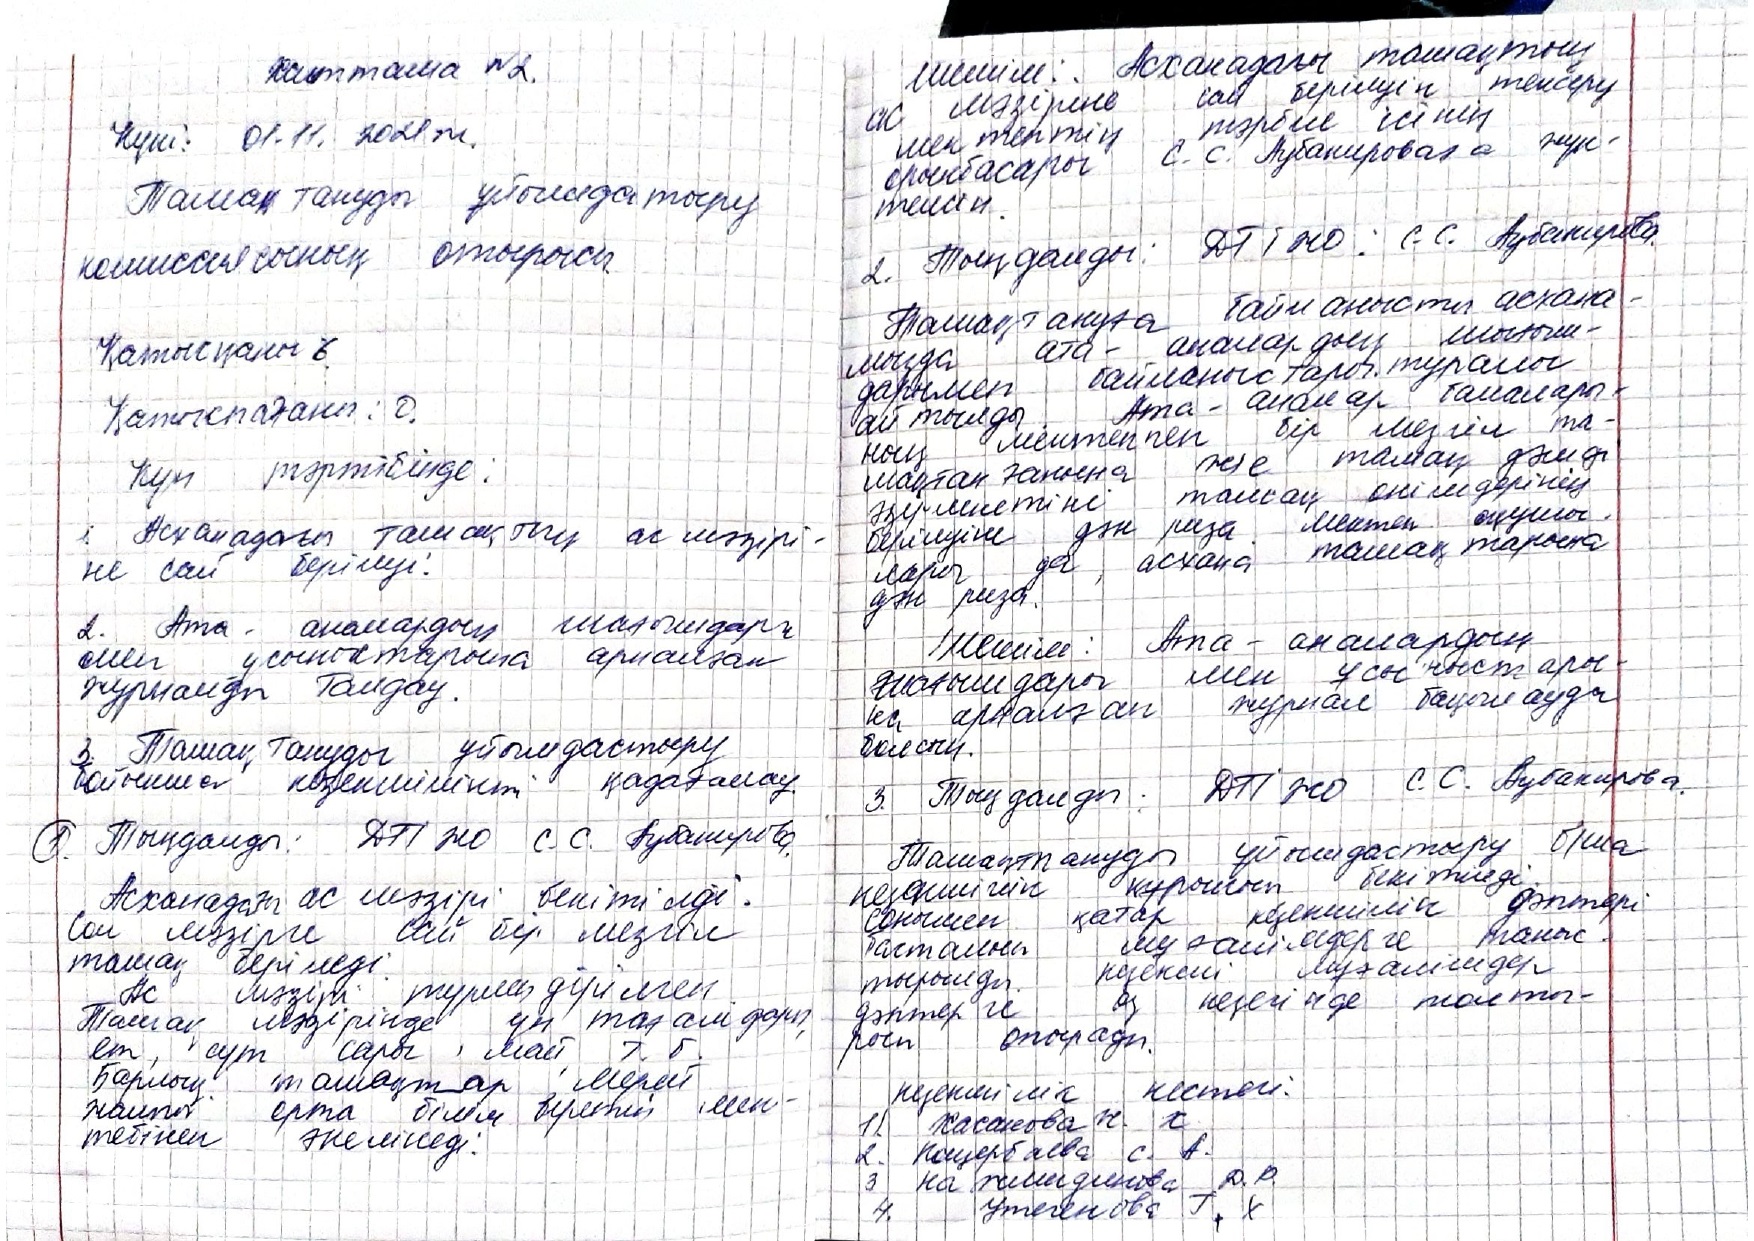 Хаттама №2.
Күні: 01.11. 2021ж.
Тамақтануды ұйымдастыру
комиссиясының отырысы.
Қатысқаны 6
Қатыспағаны: 0.
Күн тәртібінде:
1. Асханадағы тамақтың ас мәзірі-
не сай берілуі.
2. Ата-аналардың шағымдары
мен ұсыныстарына арналған
журналды талдау.
3. Тамақтануды ұйымдастыру
бойынша кезекшілікті қадағалау.
1. Тыңдалды: ДТІЖО С.С. Аубакирова.
Асханадағы ас мәзірі бекітілді.
Сол мәзірге сай бір мезгіл
тамақ беріледі.
Ас мәзірі түрлендірілген
Тамақ мәзірінде ұн тағамдары,
ет, сүт сары май, т.б.
Барлық тамақтар Мерей
жалпы орта білім беретін мек-
тебінен әкелінеді.
Шешім: Асханадағы тамақтың
ас мәзіріне сай берілуін тексеру
мектептің тәрбие ісінің
орынбасары С.С. Аубакироваға жүк-
телсін.
2. Тыңдалды: ДТІЖО: С.С. Аубакирова.
Тамақтануға байланысты асхана-
мызда ата-аналардың шағым-
дарымен байланыстары туралы
айтылды. Ата-аналар балалары-
ның мектептен бір мезгіл та-
мақтанғанына және тамақ дәмді
әзірленетіні тамақ өнімдерінің
берілуіне дән риза. Мектеп оқушы-
лары да, асхана тамақтарына
дән риза.
Шешім: Ата-аналардың
шағымдары мен ұсыныстары-
на арналған журнал бақылауда
болсын.
3. Тыңдалды: ДТІЖО С.С. Аубакирова.
Тамақтануды ұйымдастыру б/ша
кезекшілік құрылып бекітілді.
Сонымен қатар кезекшілік дәптері
басталып мұғалімдерге таныс-
тырылды. Кезекші мұғалімдер
дәптерге өз кезегінде толты-
рып отырады.
Кезекшілік кестесі:
1. Хасанова К. Х
2. Кащербаева С. А.
3 Нажмидинова Д.Р.
4. Утегенова Г. Х